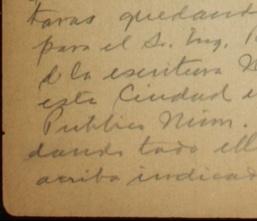 taras quedand
para el Sr. Ing.
de la escritura
esta Ciudad e
Publico Núm.
dando todo ell
arriba indicad